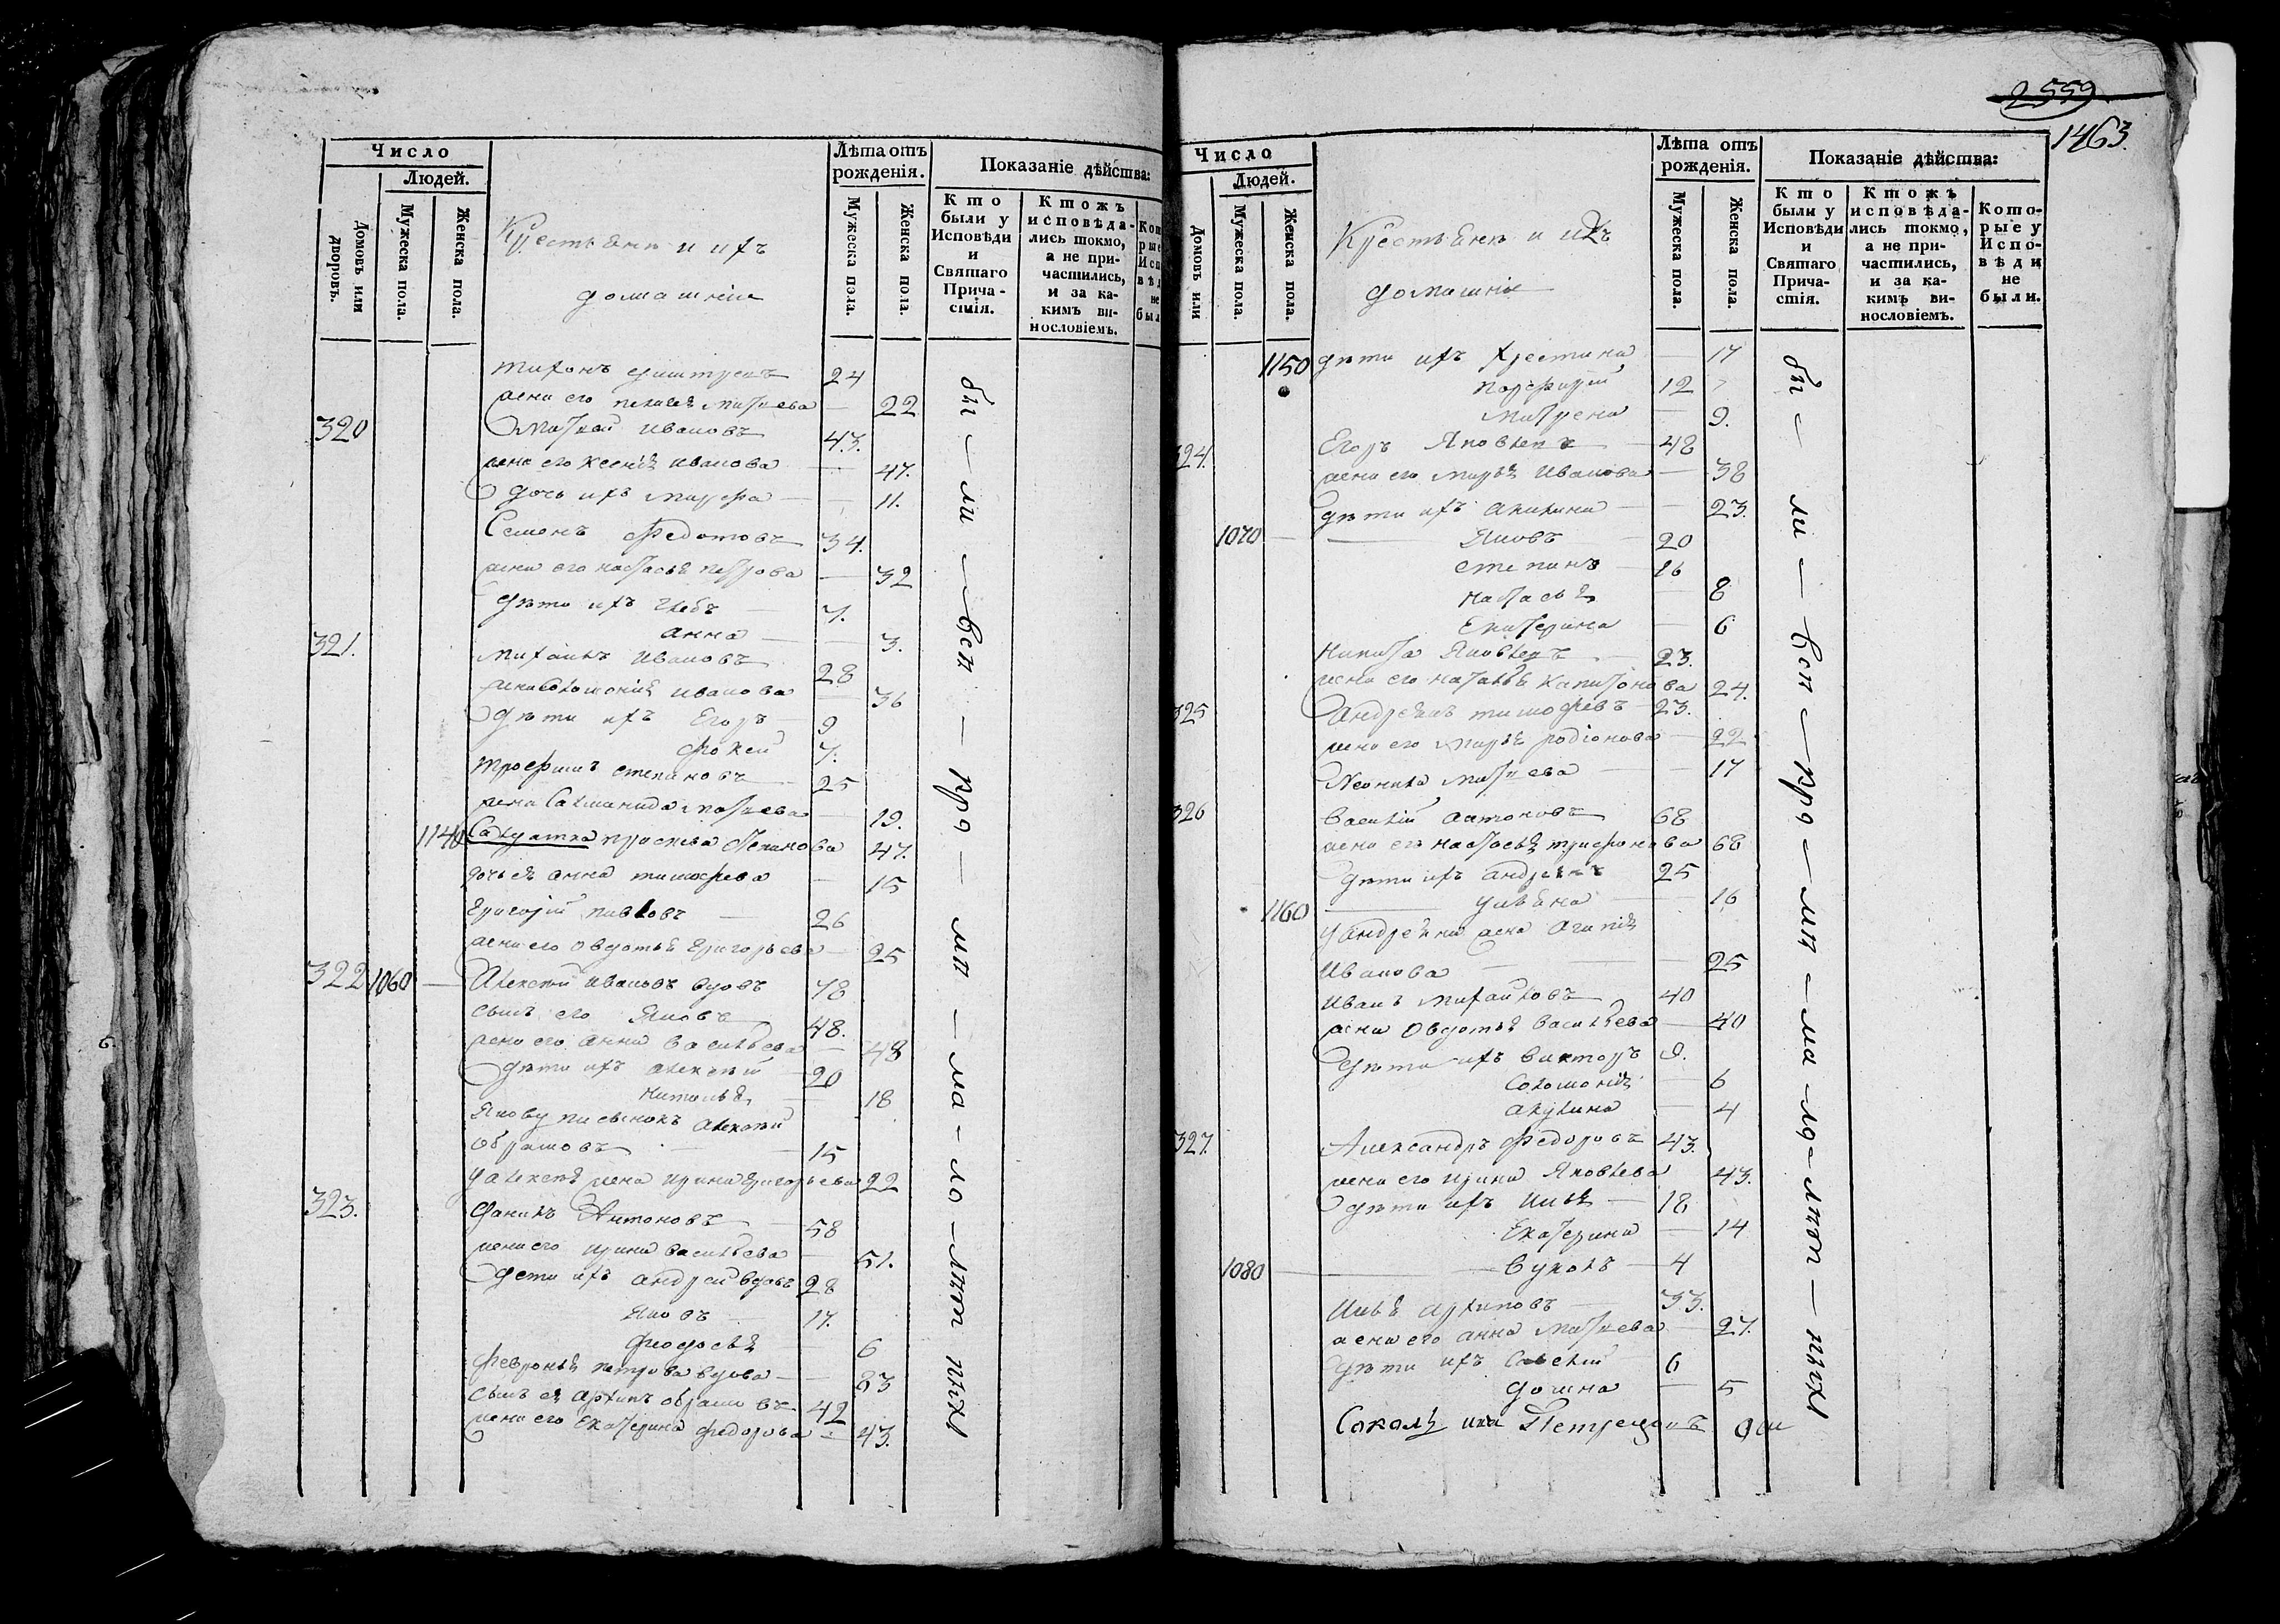 Число
Людей.
Домовъ или дворовъ.
Мужеска пола.
Женска пола.
Крестьяне и ихъ
домашнiи
Лѣта отъ рожденія.
Мужеска пола.
Женска пола.
Показаніе дѣйства:
Кто были у Исповѣди и Святаго Прича-стія.
Ктожъ исповѣда-лись токмо, а не при-частились, и за ка-кимъ ви-нословіемъ.
тихонъ 24
жена его матвева — 22
320 Матвей Ивановъ 43.
жена его ксенiя Иванова — 47.
дочь ихъ марфа — 11.
Семенъ федотовъ 34.
жена его настасья петрова — 32
дѣти ихъ глебъ 7.
анна — 3.
321. михаилъ Ивановъ 28
жена соломонiя иванова 36
дѣти ихъ Егоръ 9
фокей 7.
трофимъ степановъ 25
жена матвева 19.
1140 Салдатка прасковья степанова 47.
дочь ея анна тимофева — 15
григорiй павловъ — 26
жена его овдотья григорьева — 25
322 1060 — Алексѣй ивановъ вдовъ 78
сынъ его Яковъ 48.
жена его анна васильева — 48
дѣти ихъ алексѣй 20
наталья 18
Якову пасынокъ алексѣй
абрамовъ — 15
у алексѣя жена ирина григорьева 22
323. данилъ Антоновъ 58
жена его ирина васильева — 51.
дети ихъ андрей вдовъ 28
Яковъ 17.
феодосья 6
февронья петрова вдова — 83
сынъ ея архипъ абрамовъ 42
жена его Екатерина федорова — 43.
бы — ли — всѣ — пр — ма — ло — лѣт нихъ
2559
1463.
Число
Людей.
Домовъ или
Мужеска пола.
Женска пола.
Крестьяне и ихъ
домашнiе
Лѣта отъ рожденія.
Мужеска пола.
Женска пола.
Показаніе дѣйства:
Кто были у Исповѣди и Святаго Прича-стія.
Ктожъ исповѣда-лись токмо, а не при-частились, и за ка-кимъ ви-нословіемъ.
Кото-рые у Испо-вѣди не были.
1150 дѣти ихъ христина — 17
порфирiй 12
матрена — 9.
324. Егоръ Яковлевъ — 48
жена его марья Иванова — 38
дѣти ихъ акилина — 23.
1070 — Яковъ 20
степанъ 16
настасья — 8
Екатерина — 6
Никита Яковлевъ — 23.
жена его наталья капитонова 24.
325 Андреянъ тимофѣевъ 23.
жена его марья родiонова — 22
Неонила матвева — 17
326 Василiй антоновъ 68
жена его настасья трифонова 68
дѣти ихъ андреянъ 25
1160 ульяна — 16
у андреяна жена агапiя
Иванова — 25
Иванъ михайловъ 40
жена овдотья васильева — 40
дѣти ихъ викторъ 9.
соломонiя — 6
акулина — 4
327. Александръ федоровъ 43.
жена его ирина Яковлева 43.
дѣти ихъ илья — 18
Екатерина — 14
1080 — вуколъ — 4
Илья архиповъ 33.
жена его анна матвева 27.
дѣти ихъ савелiй 6
домна — 5
бы — ли — всѣ — пр — ма — ло — лѣт — нихъ